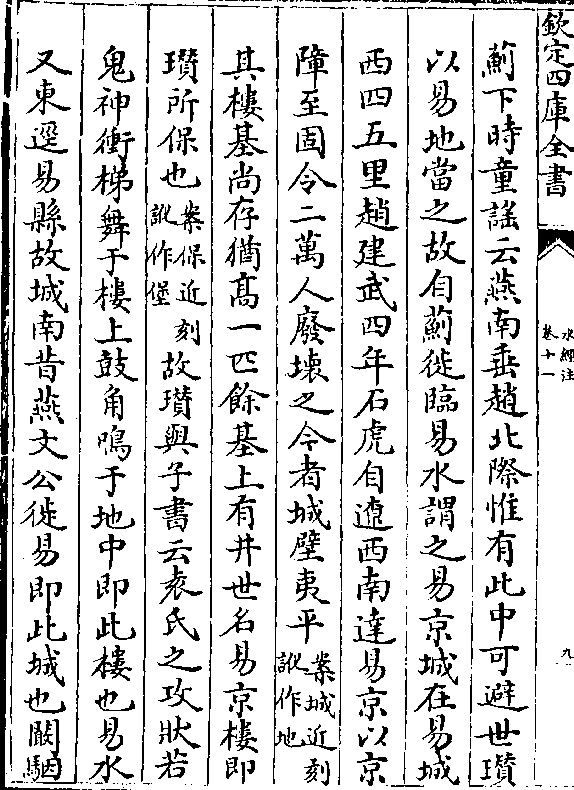 欽定四庫全書
水經注
卷十一
九
薊下時童謡云燕南垂趙北際惟有此中可避世瓚
以易地當之故自薊徙臨易水謂之易京城在易城
西四五里趙建武四年石虎自遼西南達易京以京
障至固令二萬人廢壞之今者城壁夷平案城近刻訛作地
其樓基尚存猶高一匹餘基上有井世名易京樓即
瓚所保也案保近刻訛作堡故瓚與子書云袁氏之攻狀若
鬼神衝梯舞于樓上鼓角鳴于地中即此樓也易水
又東逕易縣故城南昔燕文公徙易即此城也闞駰